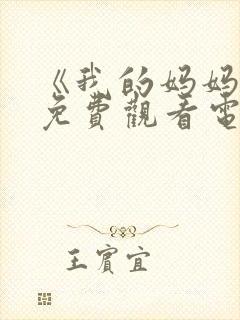 《我的妈妈
免費觀看電
王賓宜